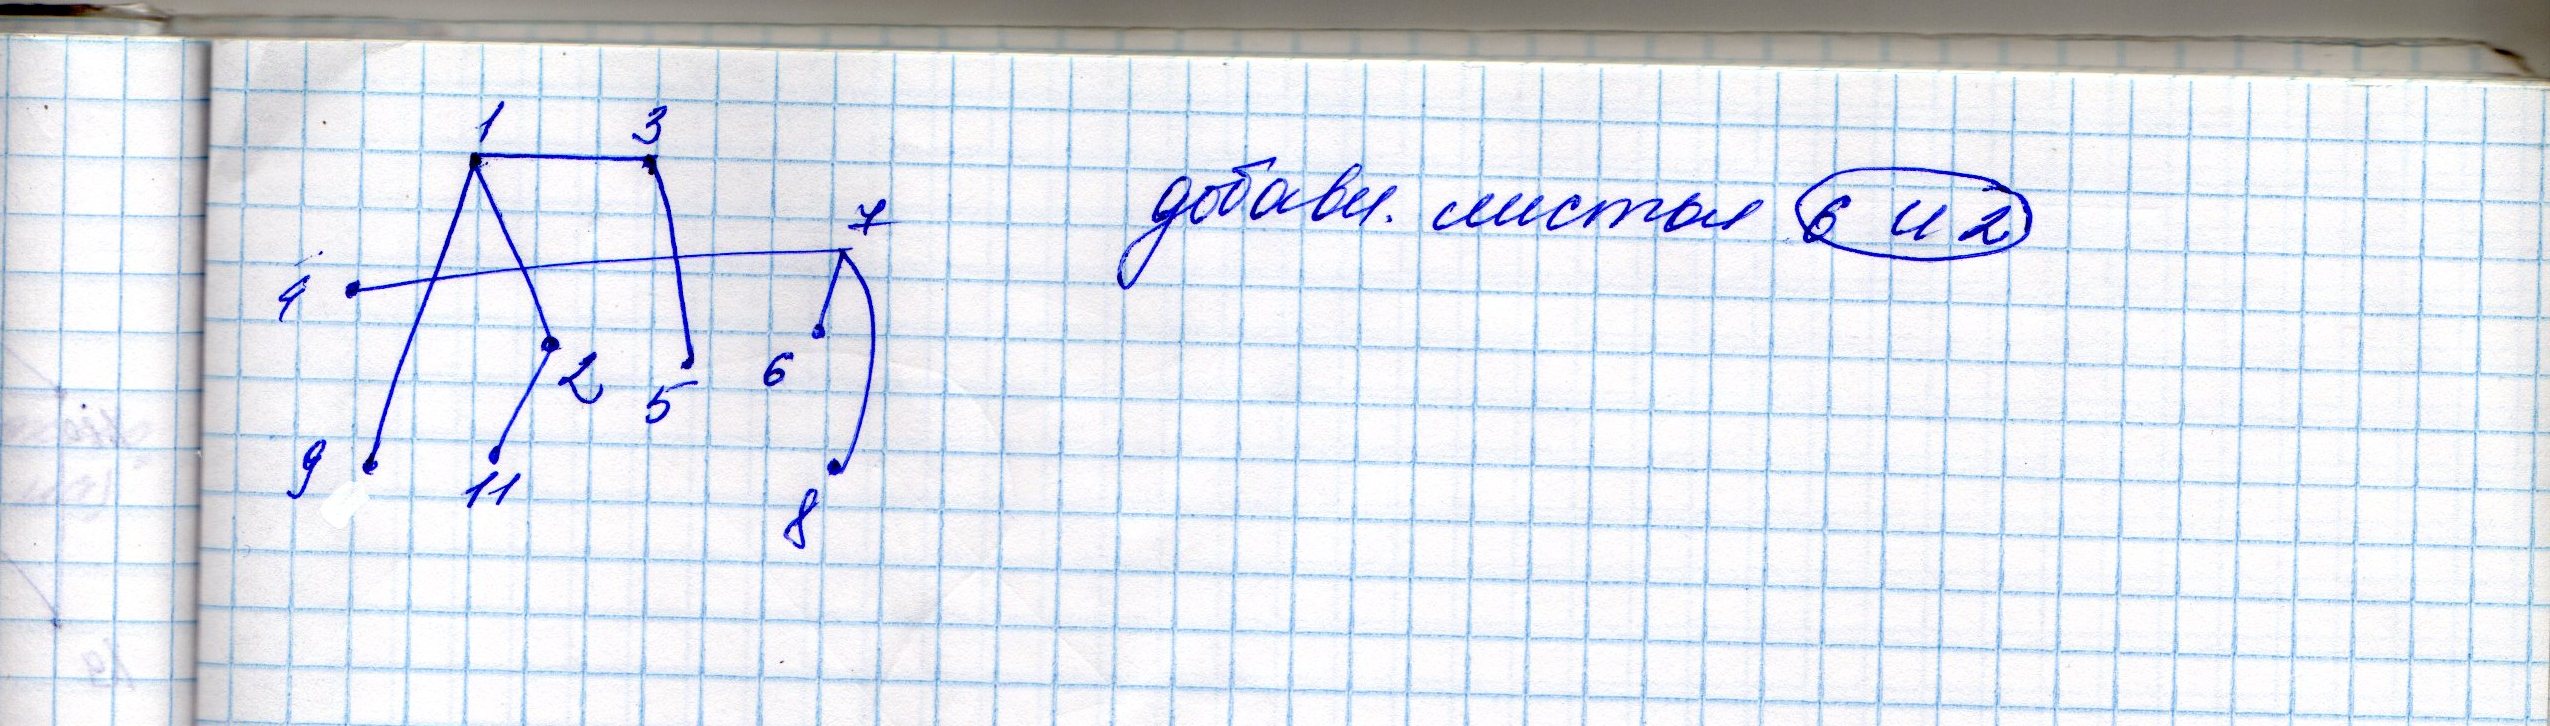 1 3
7
4
2 5 6
9 11 8
добавл. листья 6 и 2